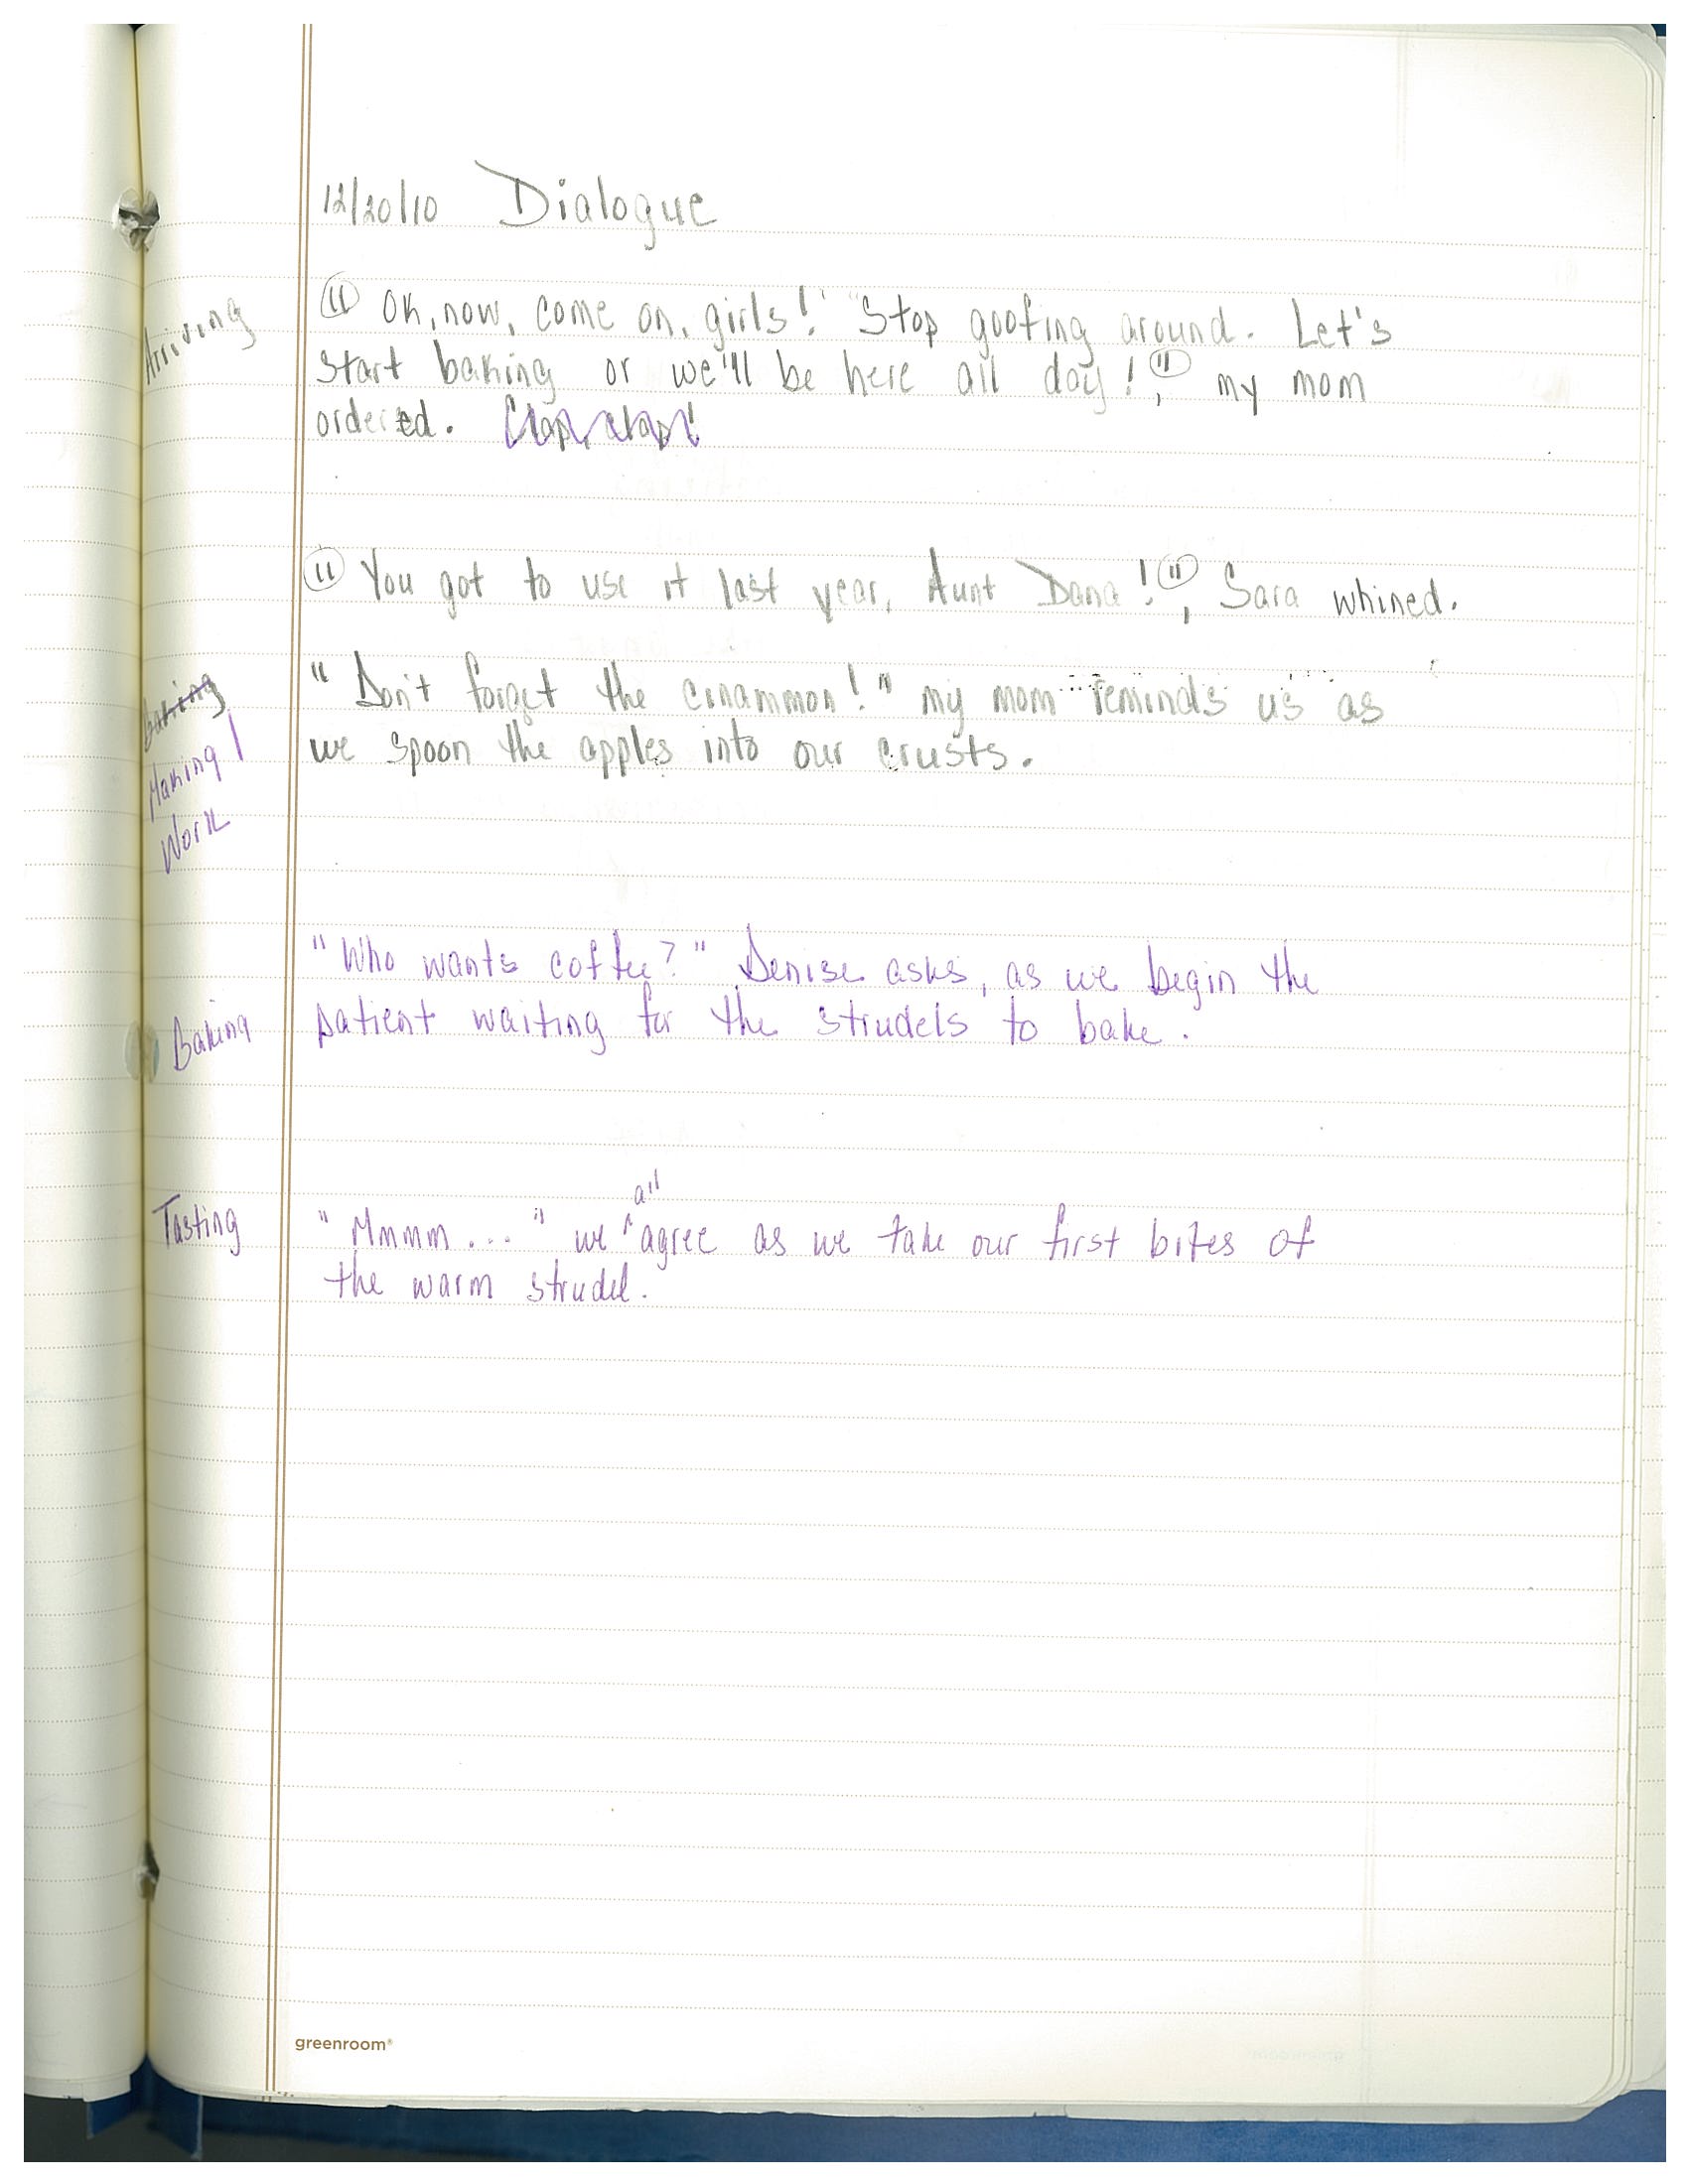 12/20/10 Dialogue
Arriving
"Ok, now, come on, girls! Stop goofing around. Let's
start baking or we'll be here all day!", my mom
ordered. Clap, clap!
"You got to use it last year, Aunt Dana!", Sara whined.
Baking
Making/
Work
"Don't forget the cinammon!" my mom reminds us as
we spoon the apples into our crusts.
"Who wants coffee?" Denise asks, as we begin the
Baking
patient waiting for the strudels to bake.
Tasting
"Mmmm..." we all agree as we take our first bites of
the warm strudel.
greenroom®